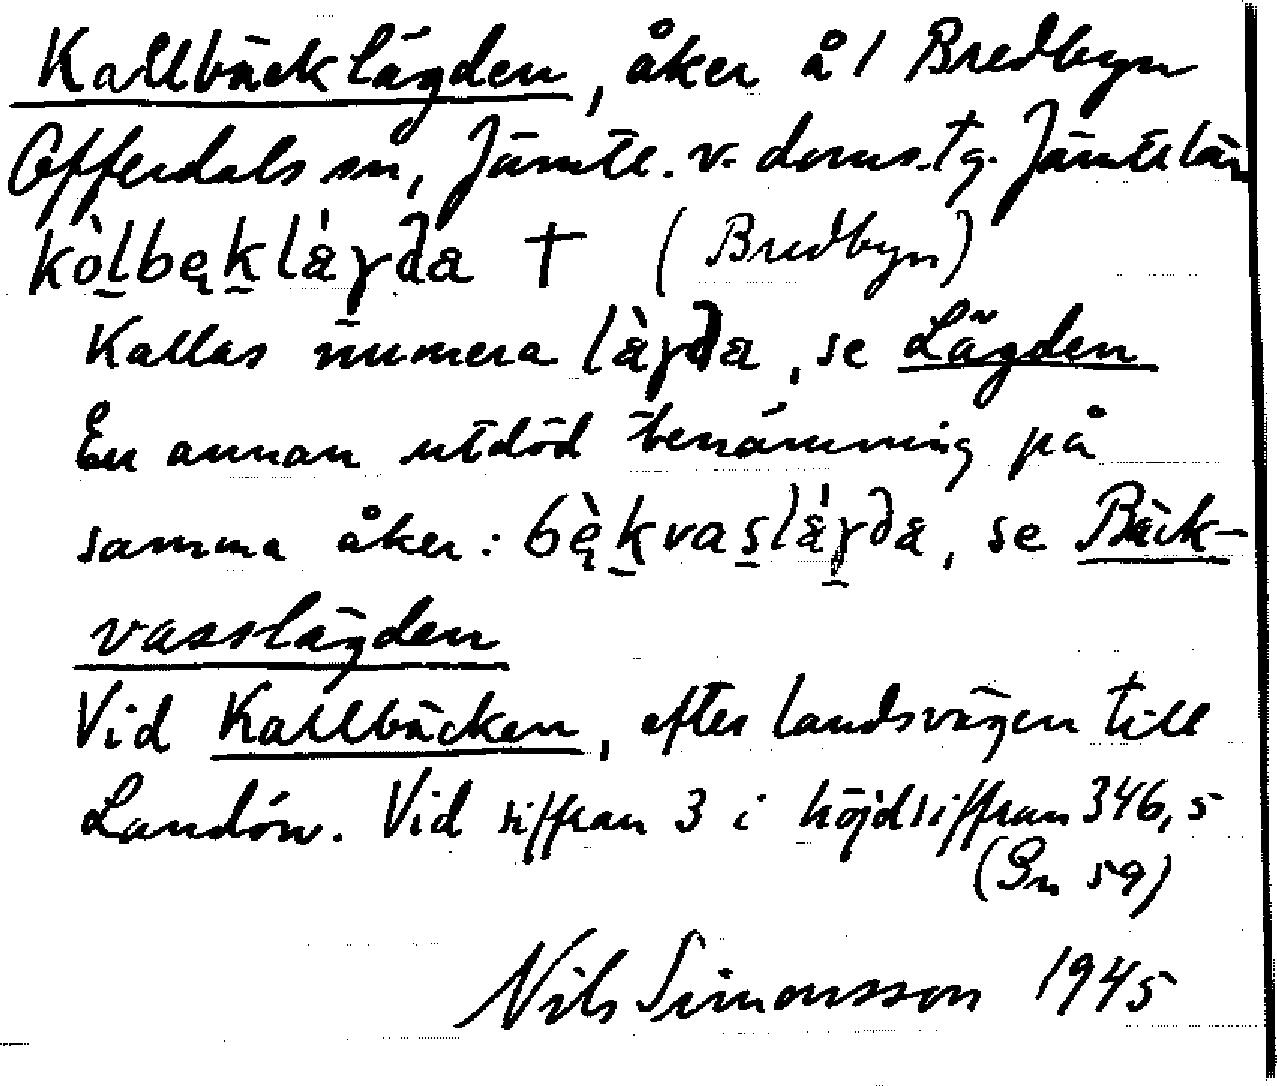 Kallbäcklägden, åker å 1 Bredbyn
Offerdals sn, Jämtl. v. doms.tg. Jämtl län
kòlbękláγda † (Bredbyn)
Kallas numera làγda, se Lägden
En annan utdöd benämning på
samma åker: bę̀kvasláγda, se Bäck-
vasslägden
Vid Kallbäcken, efter landsvägen till
Landön. Vid siffran 3 i höjdsiffran 346,5
(Bn 59)
Nils Simonsson 1945